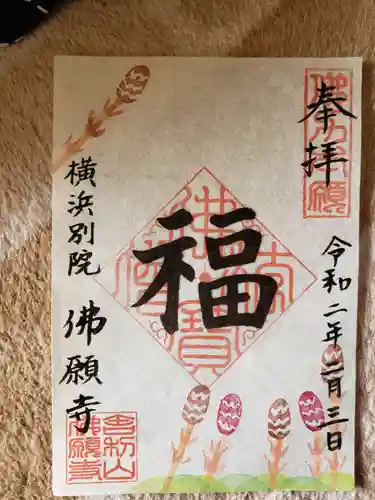 奉拝
令和二年二月三日
福
横浜別院
佛願寺